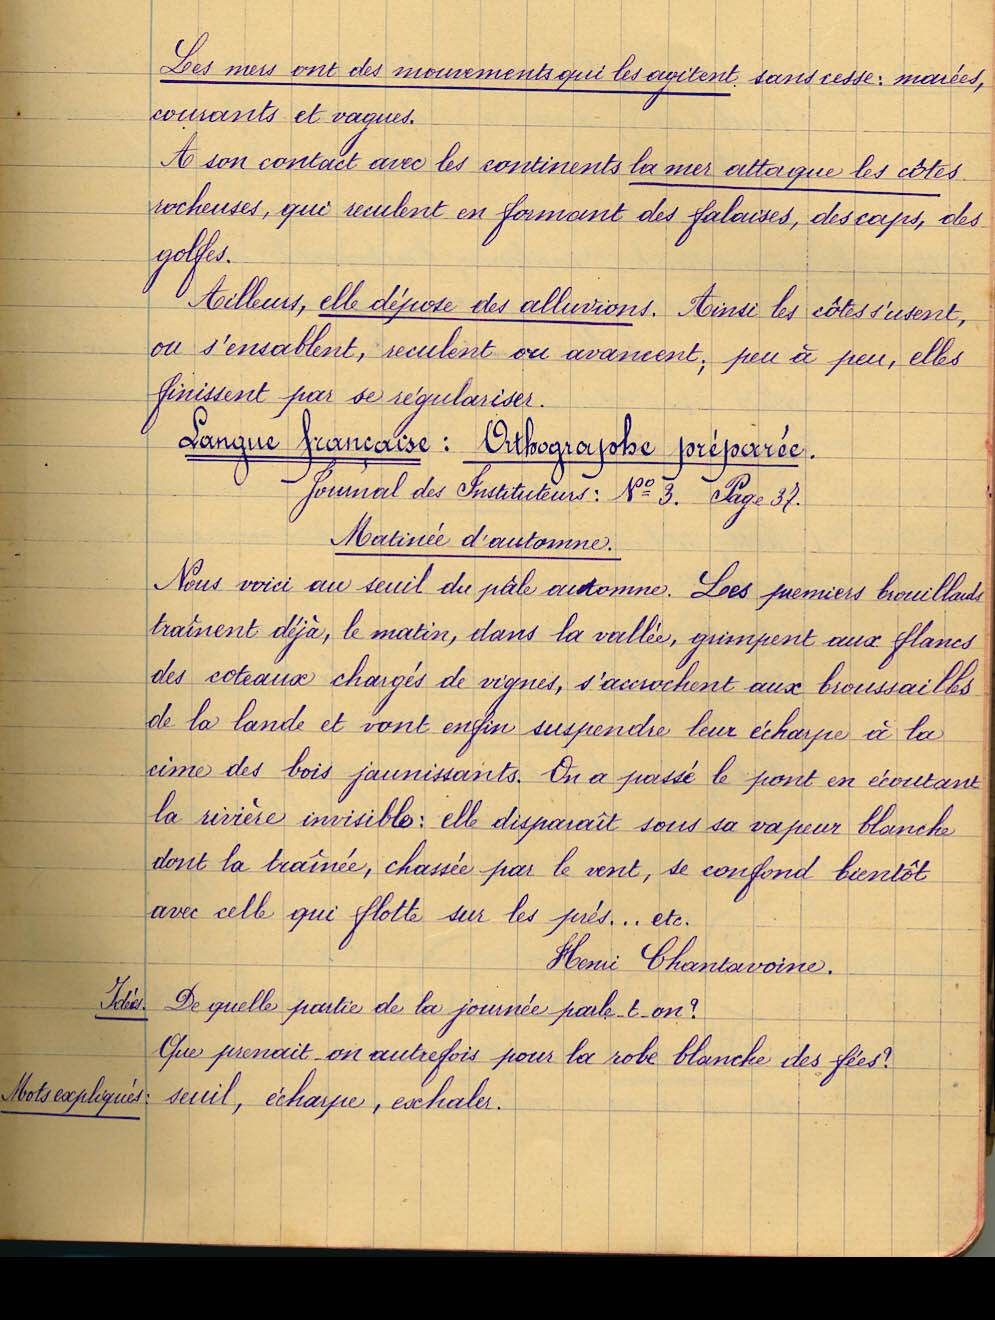 Les mers ont des mouvements qui les agitent sans cesse: marées,
courants et vagues.
A son contact avec les continents la mer attaque les côtes
rocheuses, qui reculent en formant des falaises, des caps, des
golfes.
Ailleurs, elle dépose des alluvions. Ainsi les côtes s'usent,
ou s'ensablent, reculent ou avancent; peu à peu, elles
finissent par se régulariser.
Langue française: Orthographe préparée.
Journal des Instituteurs: Nº 3. Page 37.
Matinée d'automne.
Nous voici au seuil du pâle automne. Les premiers brouillards
traînent déjà, le matin, dans la vallée, grimpent aux flancs
des coteaux chargés de vignes, s'accrochent aux broussailles
de la lande et vont enfin suspendre leur écharpe à la
cime des bois jaunissants. On a passé le pont en écoutant
la rivière invisible: elle disparaît sous sa vapeur blanche
dont la traînée, chassée par le vent, se confond bientôt
avec celle qui flotte sur les prés... etc.
Henri Chantavoine.
Idées. De quelle partie de la journée parle-t-on?
Que prenait-on autrefois pour la robe blanche des fées?
Mots expliqués: seuil, écharpe, exhaler.